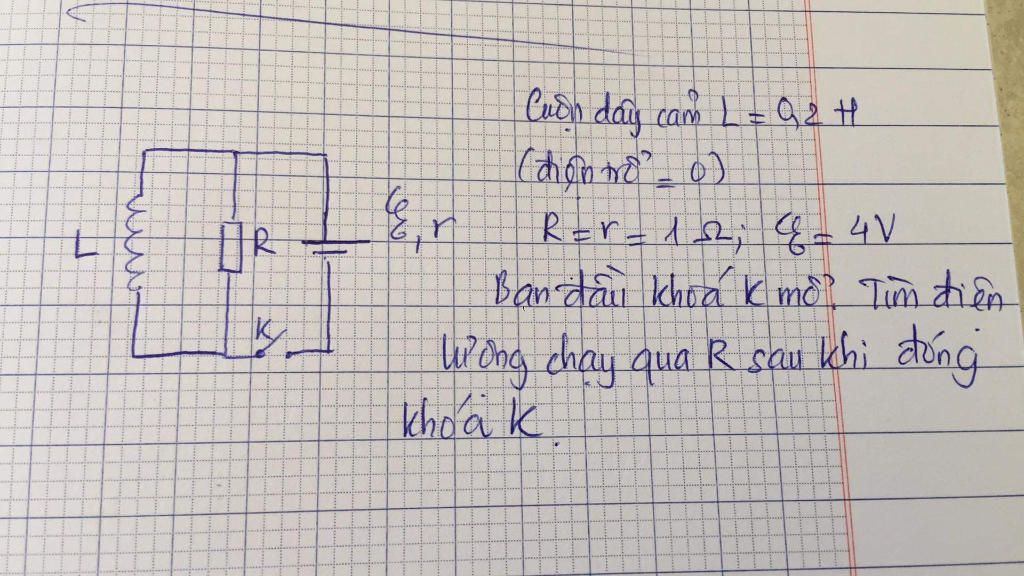 Cuộn dây cảm L = 0,2 H
(điện trở = 0)
L
R
ℰ, r
K
R = r = 1 Ω; ℰ = 4V
Ban đầu khoá K mở. Tìm điện
lượng chạy qua R sau khi đóng
khoá K.